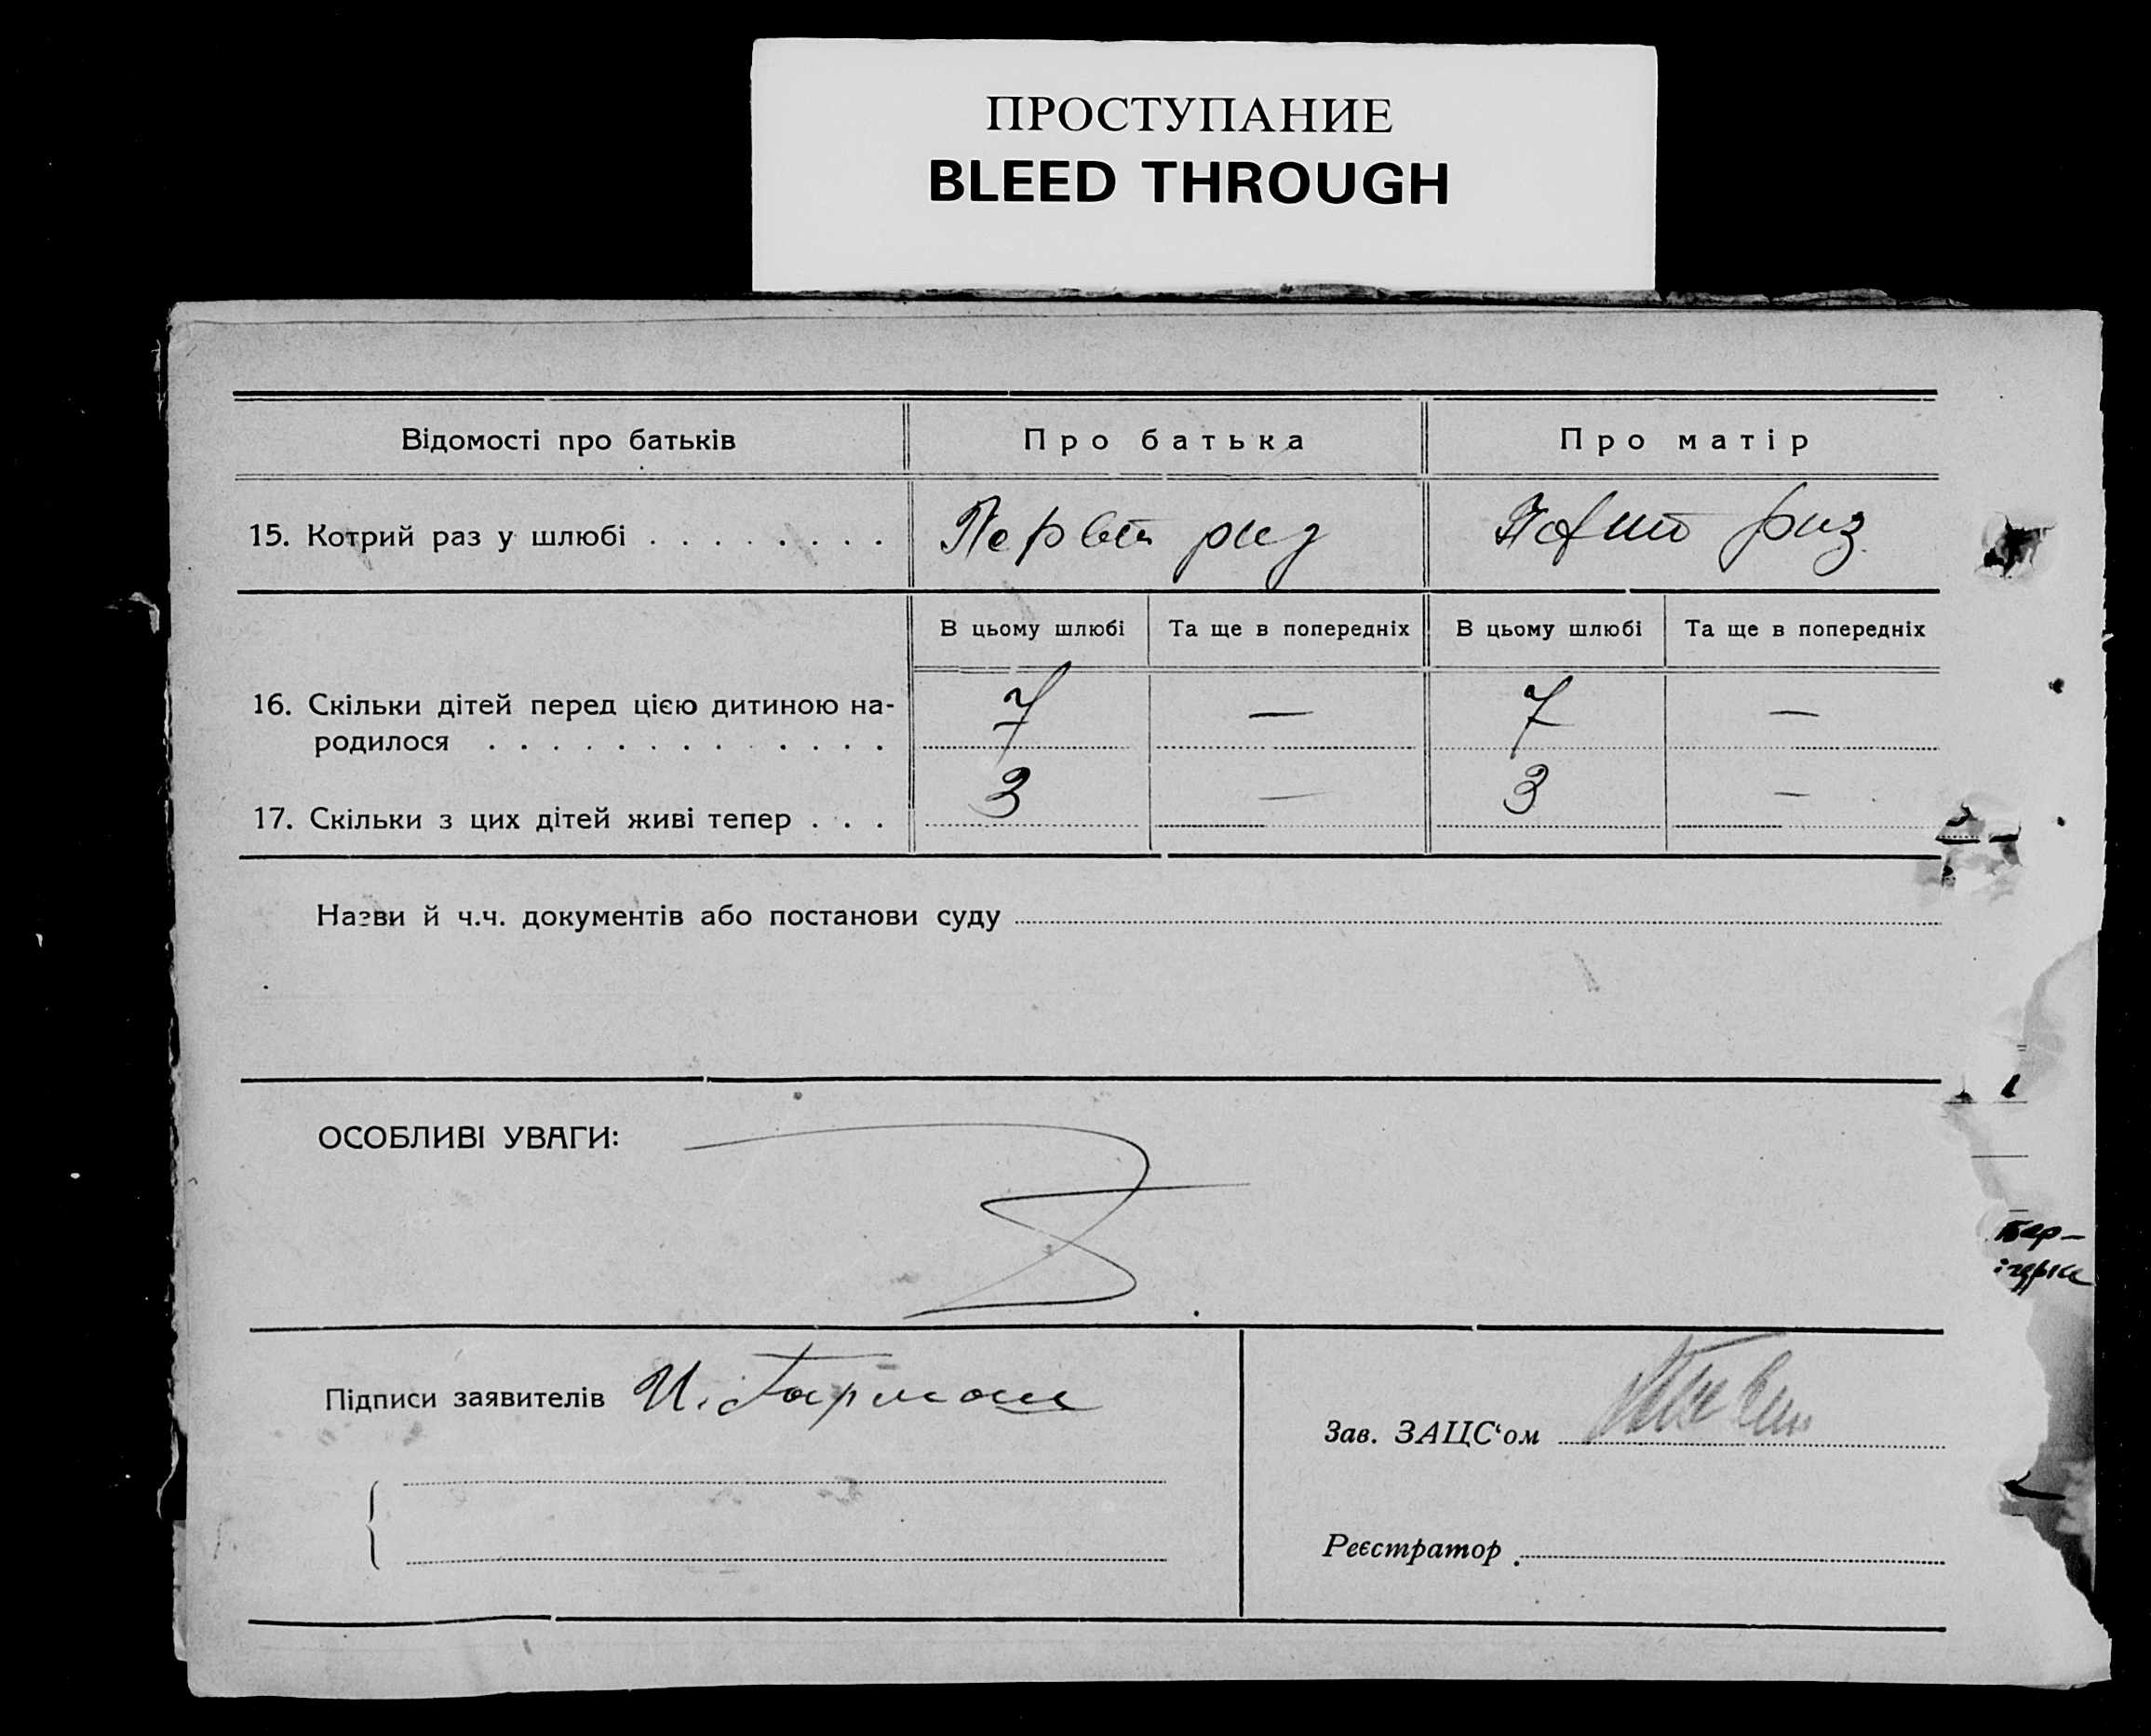 ПРОСТУПАНИЕ
BLEED THROUGH
Відомості про батьків
Про батька
Про матір
15. Котрий раз у шлюбі . . . . . . . .
раз
раз
В цьому шлюбі
Та ще в попередніх
В цьому шлюбі
Та ще в попередніх
16. Скільки дітей перед цією дитиною на-
родилося . . . . . . . . . . . . .
7 — 7 —
17. Скільки з цих дітей живі тепер . . .
3 — 3 —
Назви й ч.ч. документів або постанови суду
ОСОБЛИВІ УВАГИ:
Підписи заявителів И.
Зав. ЗАЦС‘ом
Реєстратор